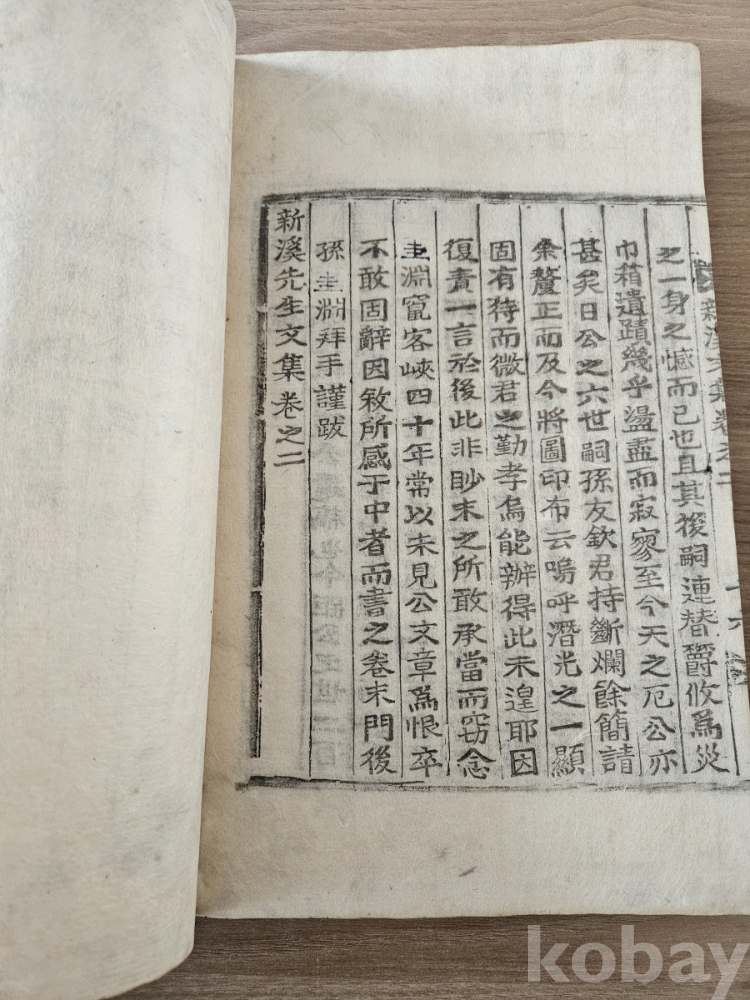 新溪文集卷之二
之一身之憾而已也且其後嗣連替欝攸爲災
巾箱遺蹟幾乎盪盡而寂寥至今天之厄公亦
甚矣日公之六世嗣孫友欽君持斷爛餘簡請
余釐正而及今將圖印布云嗚呼潛光之一顯
固有待而微君之勤孝烏能辦得此未遑耶因
復責一言於後此非眇末之所敢承當而窃念
圭淵竄客峽四十年常以未見公文章爲恨卒
不敢固辭因敘所感于中者而書之卷末門後
孫圭淵拜手謹跋
新溪先生文集卷之二
kobay